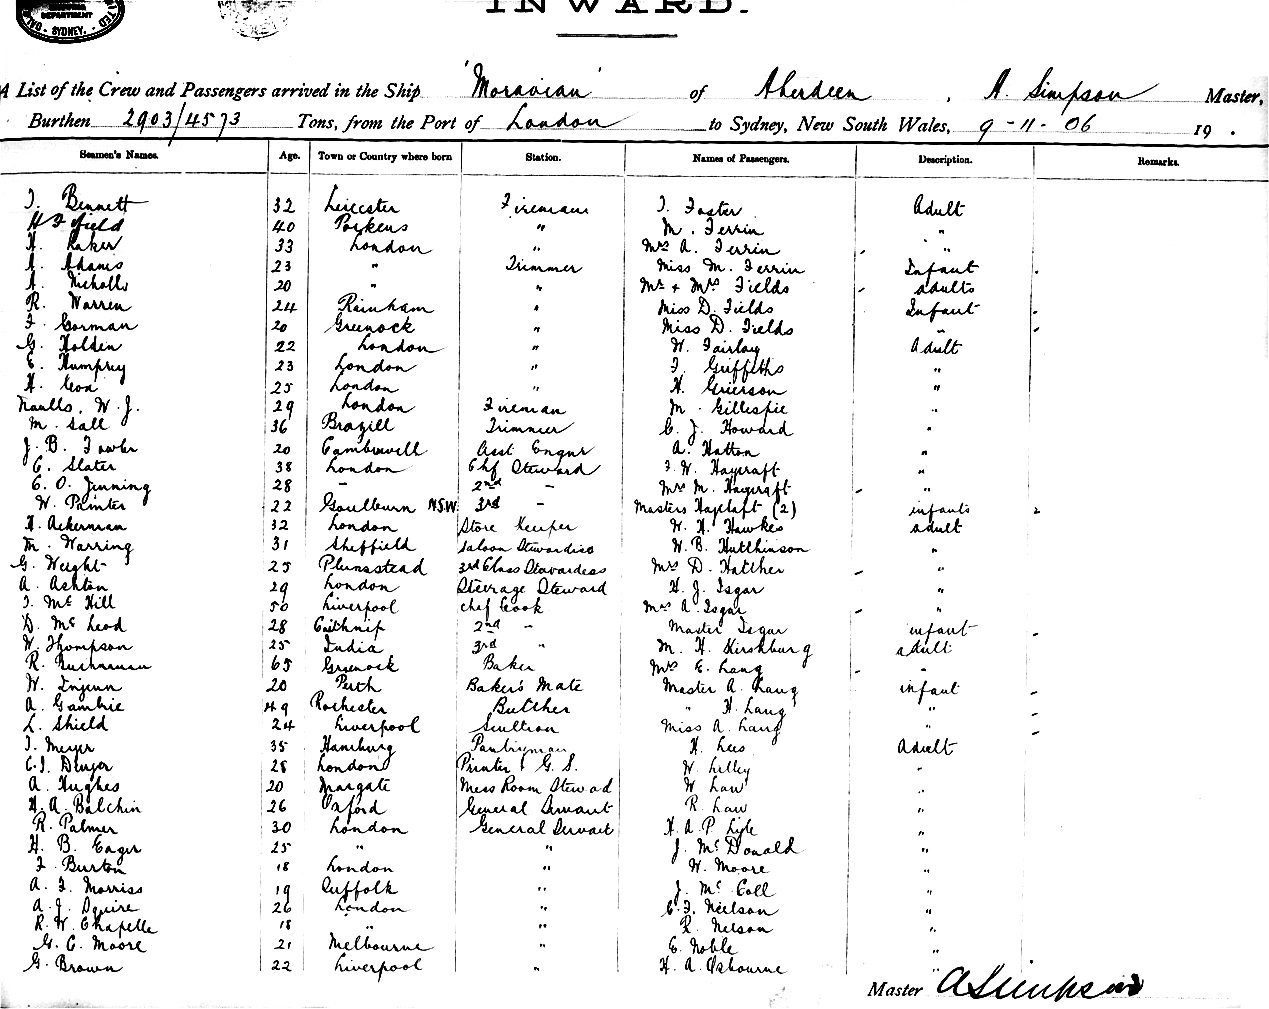 DEPARTMENT
SYDNEY.
INWARD.
A List of the Crew and Passengers arrived in the Ship 'Moravian' of Aberdeen, A. Simpson Master,
Burthen 2903/4573 Tons, from the Port of London to Sydney, New South Wales, 9-11-06 19 .
Seamen's Names. Age. Town or Country where born Station. Names of Passengers. Description. Remarks.
J. Bennett 32 Leicester Fireman J. Foster Adult
H F Field 40 " M. Ferrin "
H. Baker 33 London " Mrs A. Ferrin "
A. Adams 23 " Trimmer Miss M. Ferrin Infant
A. Nicholls 20 " " Mr & Mrs Fields adults
R. Warren 24 Rainham " Miss D. Fields Infant
F. Gorman 20 Greenock " Miss D. Fields "
G. Holden 22 London " W. Fairlay Adult
E. Humphry 23 London " J. Griffiths "
H. Cox 25 London " H. Grierson "
Naulls, W. J. 29 London Fireman M. Gillespie "
M. Sall 36 Brazill Trimmer C. J. Howard "
J. B. Fowler 20 Camberwell Asst Engnr A. Hatton "
C. Slater 38 London Chf Steward F. W. Haycraft "
C. O. Jenning 28 - 2nd - Mrs M. Haycraft "
W. Painter 22 Goulburn N.S.W 3rd - Masters Haycraft (2) infants 2
H. Ackerman 32 London Store Keeper W. H. Hawkes adult
M. Warring 31 Sheffield Saloon Stewardess W. B. Hutchinson "
G. Weight 25 Plumstead 3rd Class Stewardess Mrs D. Hatcher "
A. Ashton 29 London Steerage Steward H. J. Isgar "
J. Mc Hill 50 Liverpool Chef Cook Mrs A. Isgar "
D. Mc Leod 28 Caithnip 2nd " Master Isgar infant
W. Thompson 25 India 3rd " M. H. Kirshburg adult
R. Buchannan 65 Greenock Baker Mrs E. Lang "
W. Injeun 20 Perth Baker's Mate Master A. Lang infant
A. Gambrie 49 Rochester Butcher " H. Lang "
L. Shield 24 Liverpool Scullion Miss A. Lang "
J. Meyer 35 Hamburg Pantryman H. Lees Adult
C. J. 28 London Printer & G. S. W. Lilley "
A. Hughes 20 Margate Mess Room Steward W Law "
H. A. Balchin 26 Oxford General Servant R. Law "
R. Palmer 30 London General Servant H. A. P. Lyle "
H. B. Eager 25 " " J. McDonald "
F. Burton 18 London " W. Moore "
A. J. Morriss 19 Suffolk " J. Mc Coll "
A. J. Squire 26 London " C. F. Neilson "
R. W. Chapelle 18 " " R. Nelson "
G. C. Moore 21 Melbourne " E. Noble "
G. Brown 22 Liverpool " H. A. Osbourne "
Master A Simpson